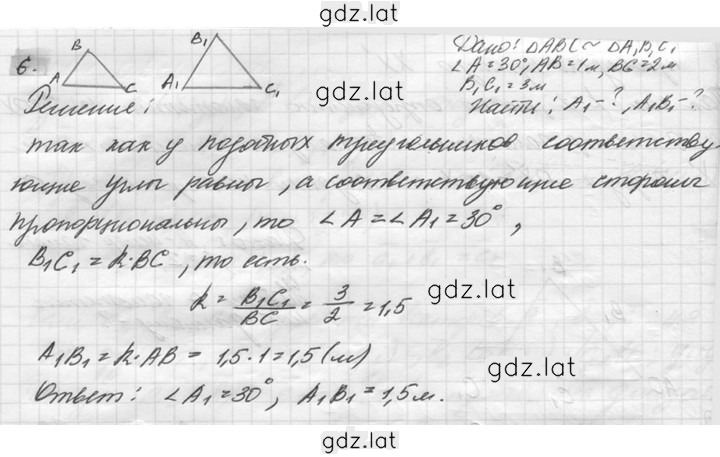 gdz.lat
6.
B
A
C
B₁
A₁
C₁
Дано: ΔABC ~ ΔA₁B₁C₁
∠A = 30°, AB = 1м, BC = 2м
B₁C₁ = 3м
Найти: A₁ - ?, A₁B₁ - ?
Решение:
gdz.lat
gdz.lat
так как у подобных треугольников соответству-
ющие углы равны, а соответствующие стороны
пропорциональны, то ∠A = ∠A₁ = 30°,
B₁C₁ = k·BC, то есть.
gdz.lat
k = B₁C₁/BC = 3/2 = 1,5
A₁B₁ = k·AB = 1,5·1 = 1,5 (м)
gdz.lat
Ответ: ∠A₁ = 30°, A₁B₁ = 1,5м.
gdz.lat